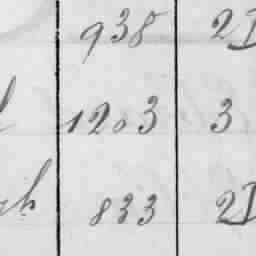 938 2
1203 3
833 2